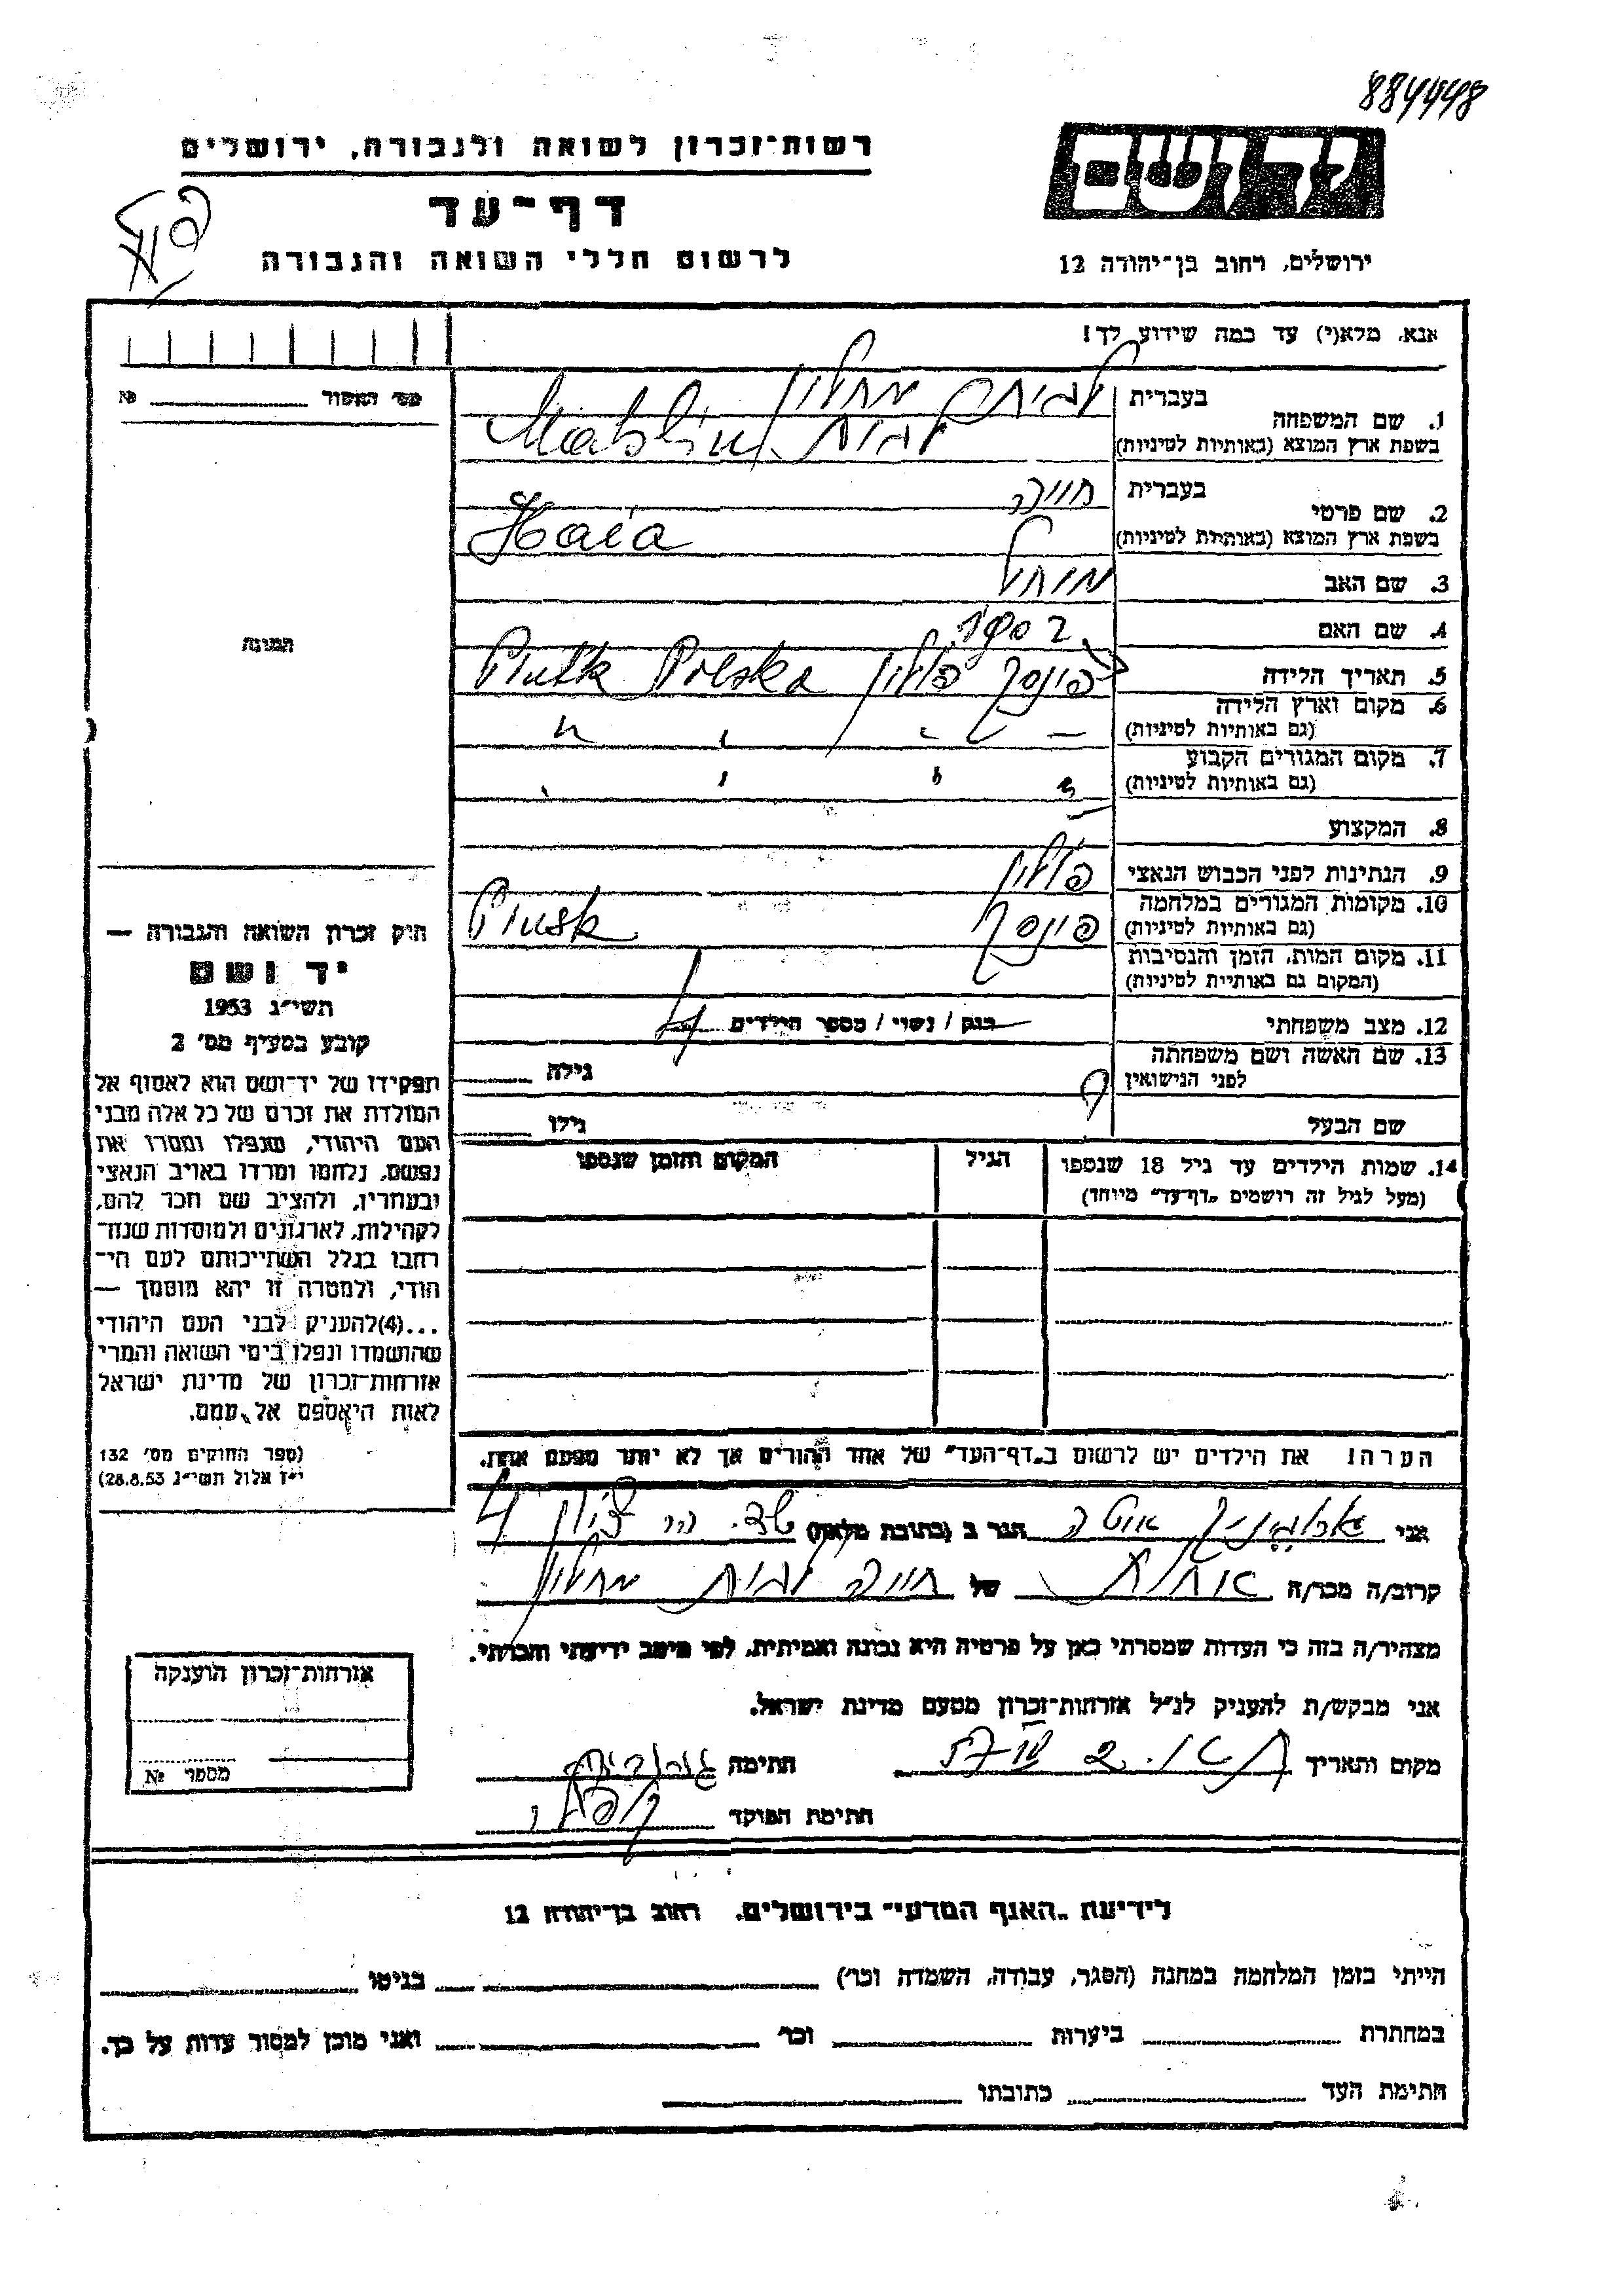 884448
רשות־זכרון לשואה ולגבורה, ירושלים
יד ושם
דף־עד
לרשום חללי השואה והגבורה
ירושלים, רחוב בן־יהודה 12
אנא, מלא(י) עד כמה שידוע לך!
מס' האסור № 
1. שם המשפחה
בעברית
בשפת ארץ המוצא (באותיות לטיניות)
2. שם פרטי
בעברית חייה
בשפת ארץ המוצא (באותיות לטיניות) Haia
3. שם האב
4. שם האם
5. תאריך הלידה
פינסק פולין Pinsk Polska
6. מקום וארץ הלידה
(גם באותיות לטיניות)
7. מקום המגורים הקבוע
(גם באותיות לטיניות)
8. המקצוע
9. הנתינות לפני הכבוש הנאצי פולין
10. מקומות המגורים במלחמה
(גם באותיות לטיניות) פינסק Pinsk
11. מקום המות, הזמן והנסיבות
(המקום גם באותיות לטיניות)
12. מצב משפחתי רווק / נשוי / מספר הילדים
13. שם האשה ושם משפחתה
לפני הנישואין גילה
שם הבעל גילו
14. שמות הילדים עד גיל 18 שנספו
(מעל לגיל זה רושמים „דף־עד" מיוחד)
הגיל
המקום והזמן שנספו
הערה! את הילדים יש לרשום ב„דף־העד" של אחד ההורים אך לא יותר מפעם אחת.
תמונה
חוק זכרון השואה והגבורה —
יד ושם
תשי"ג 1953
קובע בסעיף מס' 2
תפקידו של יד־ושם הוא לאסוף אל
המולדת את זכרם של כל אלה מבני
העם היהודי, שנפלו ומסרו את
נפשם, נלחמו ומרדו באויב הנאצי
ובעוזריו, ולהציב שם וזכר להם,
לקהילות, לארגונים ולמוסדות שנח־
רבו בגלל השתייכותם לעם הי־
הודי, ולמטרה זו יהא מוסמך —
...(4)להעניק לבני העם היהודי
שהושמדו ונפלו בימי השואה והמרי
אזרחות־זכרון של מדינת ישראל
לאות היאספם אל עמם.
(ספר החוקים מס' 132
י"ז אלול תשי"ג 28.8.53)
אני הגר ב (כתובת מלאה) הר ציון 4
קרוב/ה מכר/ה אחות של חייה
מצהיר/ה בזה כי העדות שמסרתי כאן על פרטיה היא נכונה ואמיתית, לפי מיטב ידיעתי והכרתי.
אני מבקש/ת להעניק לנ"ל אזרחות־זכרון מטעם מדינת ישראל.
מקום ותאריך חתימה
חתימת הפוקד
אזרחות־זכרון הוענקה
מספר №
לידיעת „האגף המדעי" בירושלים, רחוב בן־יהודה 12
הייתי בזמן המלחמה במחנה (הסגר, עבודה, השמדה וכו') בגיטו
במחתרת ביערות וכו' ואני מוכן למסור עדות על כך.
חתימת העד כתובתו